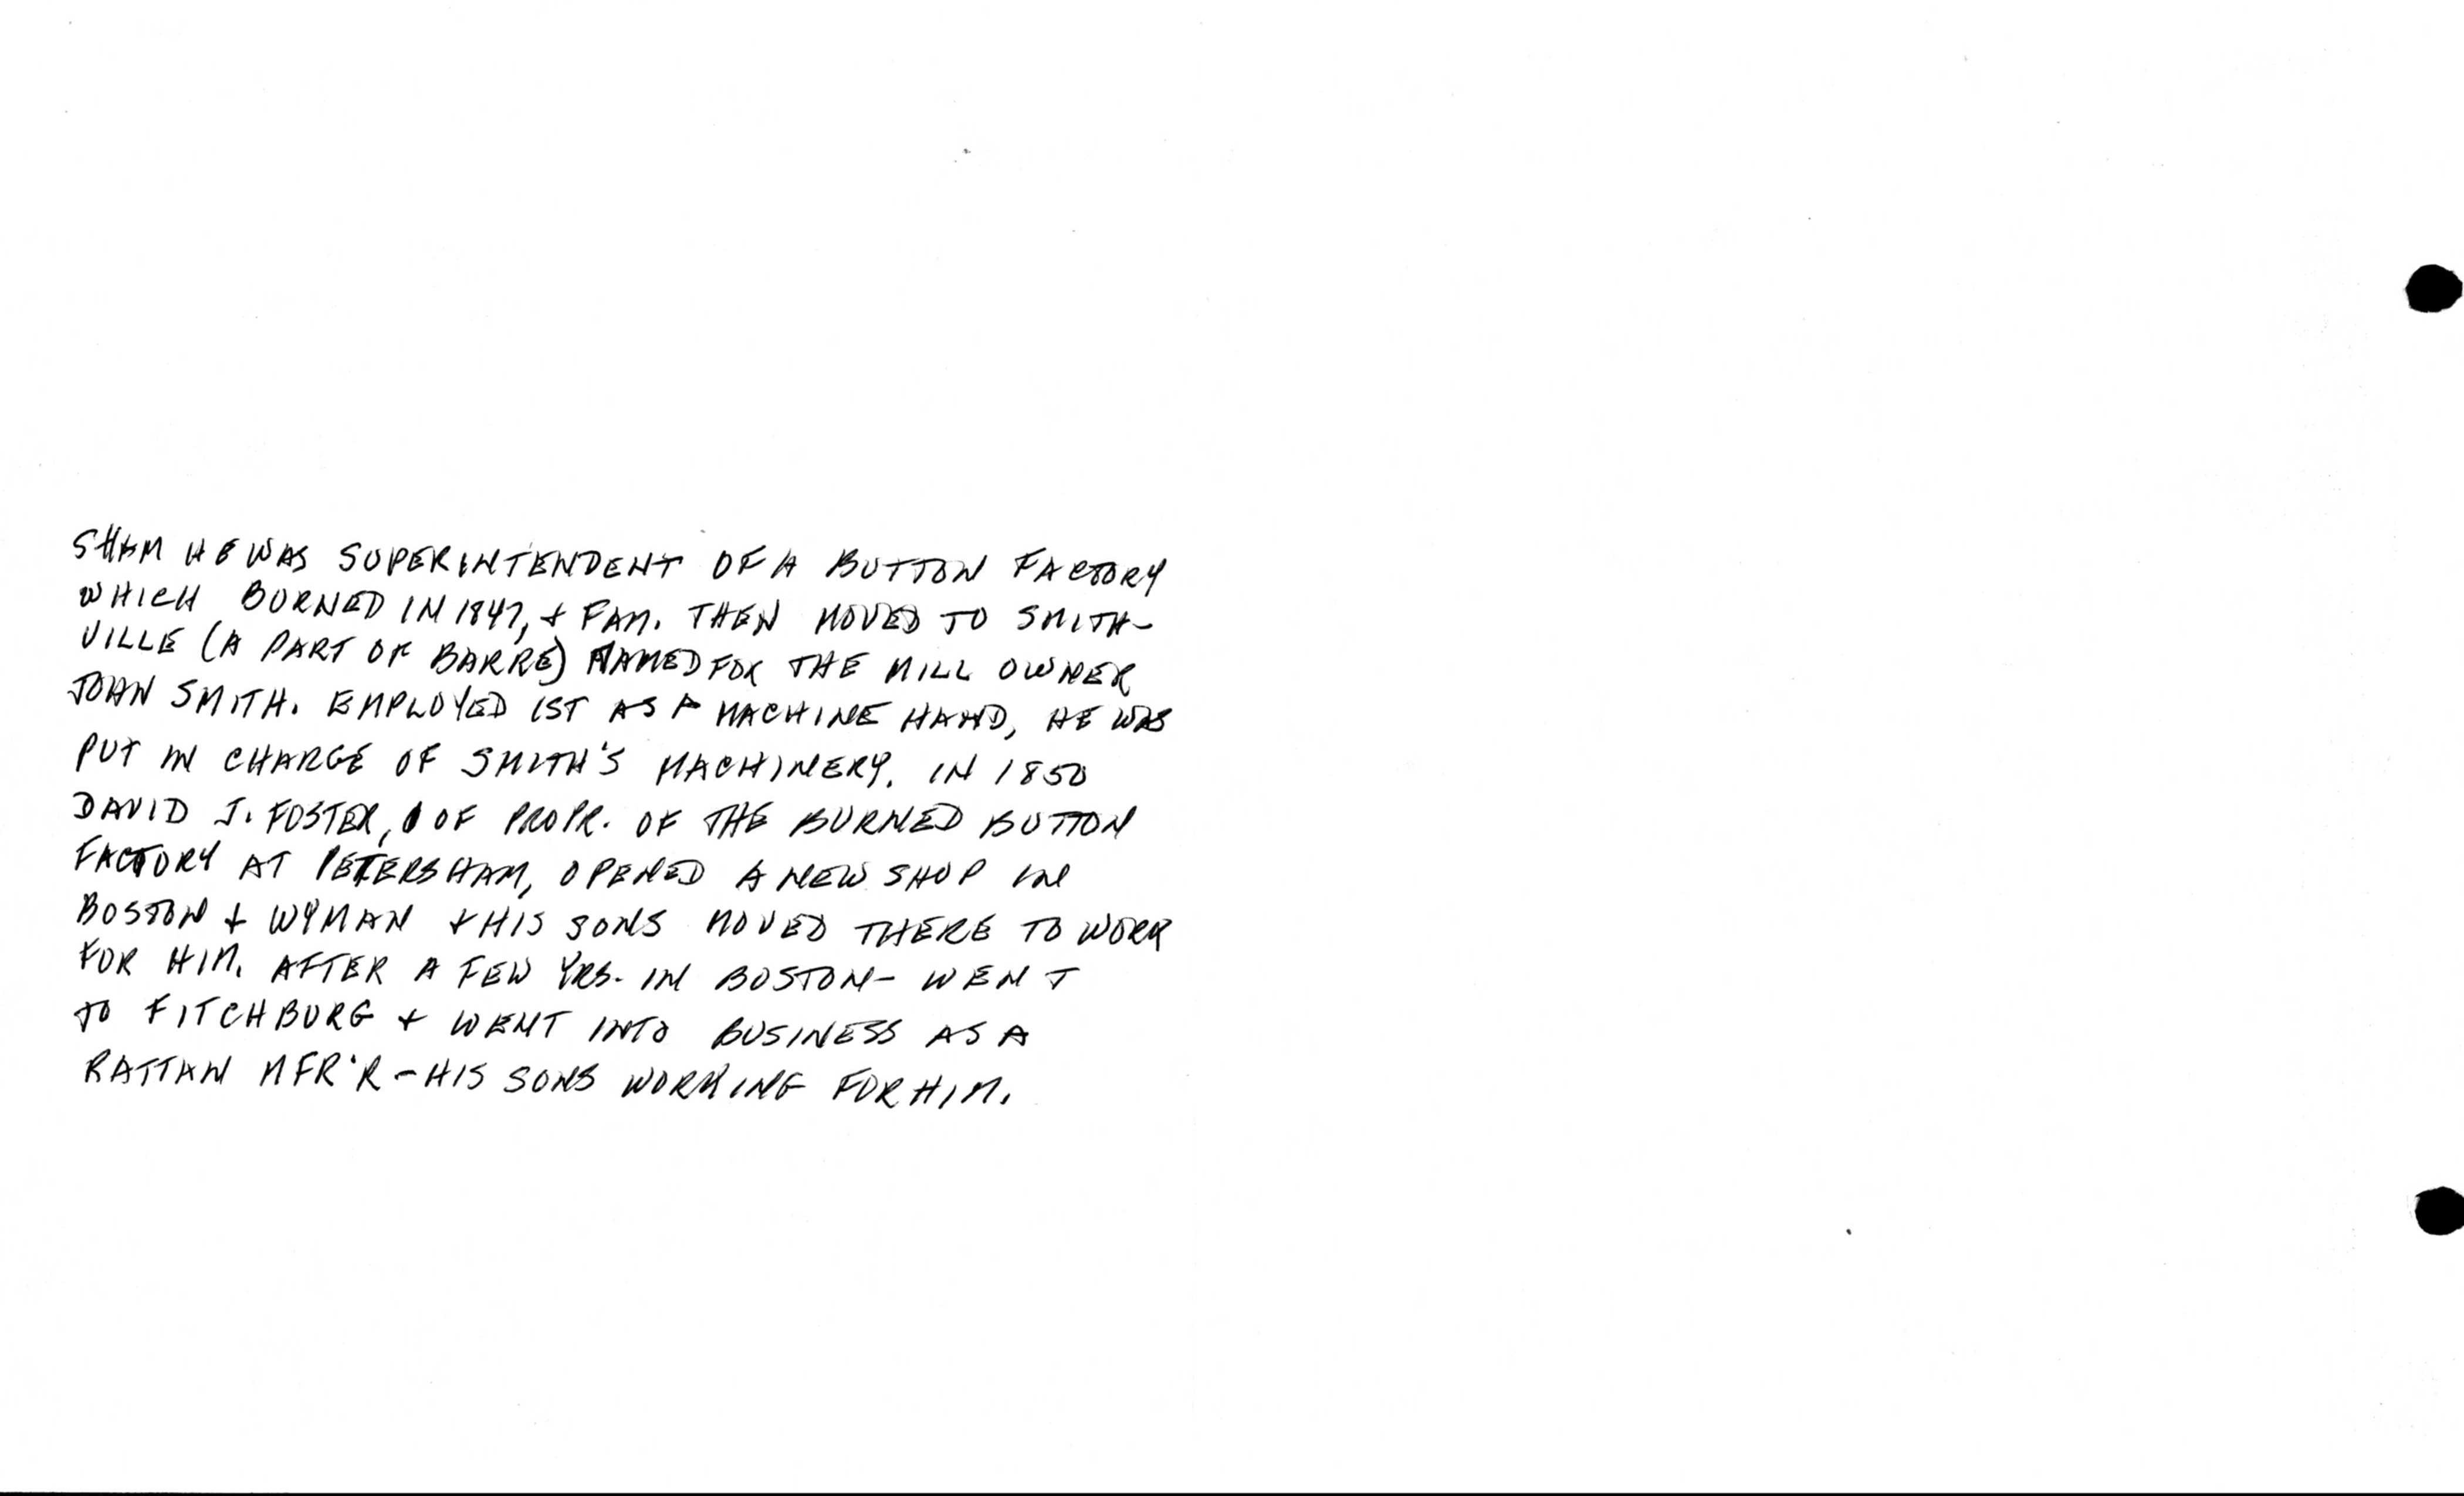 SHAM HE WAS SUPERINTENDENT OF A BUTTON FACTORY
WHICH BURNED IN 1847, + FAM. THEN MOVED TO SMITH-
VILLE (A PART OF BARRE) NAMED FOR THE MILL OWNER
JOHN SMITH. EMPLOYED 1ST AS A MACHINE HAND, HE WAS
PUT IN CHARGE OF SMITH'S MACHINERY. IN 1850
DAVID J. FOSTER, 1 OF PROPR. OF THE BURNED BUTTON
FACTORY AT PETERSHAM, OPENED A NEW SHOP IN
BOSTON + WYMAN + HIS SONS MOVED THERE TO WORK
FOR HIM. AFTER A FEW YRS. IN BOSTON - WENT
TO FITCHBURG + WENT INTO BUSINESS AS A
RATTAN MFR'R - HIS SONS WORKING FOR HIM.